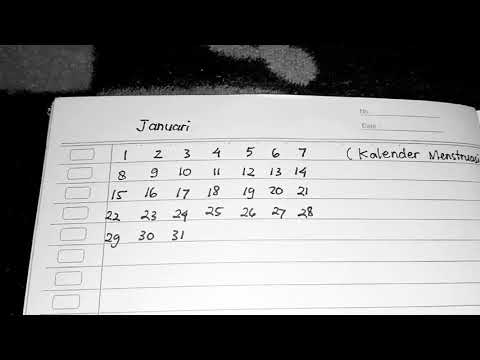 No
Date
Januari
1 2 3 4 5 6 7 (Kalender Menstruasi
8 9 10 11 12 13 14
15 16 17 18 19 20 21
22 23 24 25 26 27 28
29 30 31